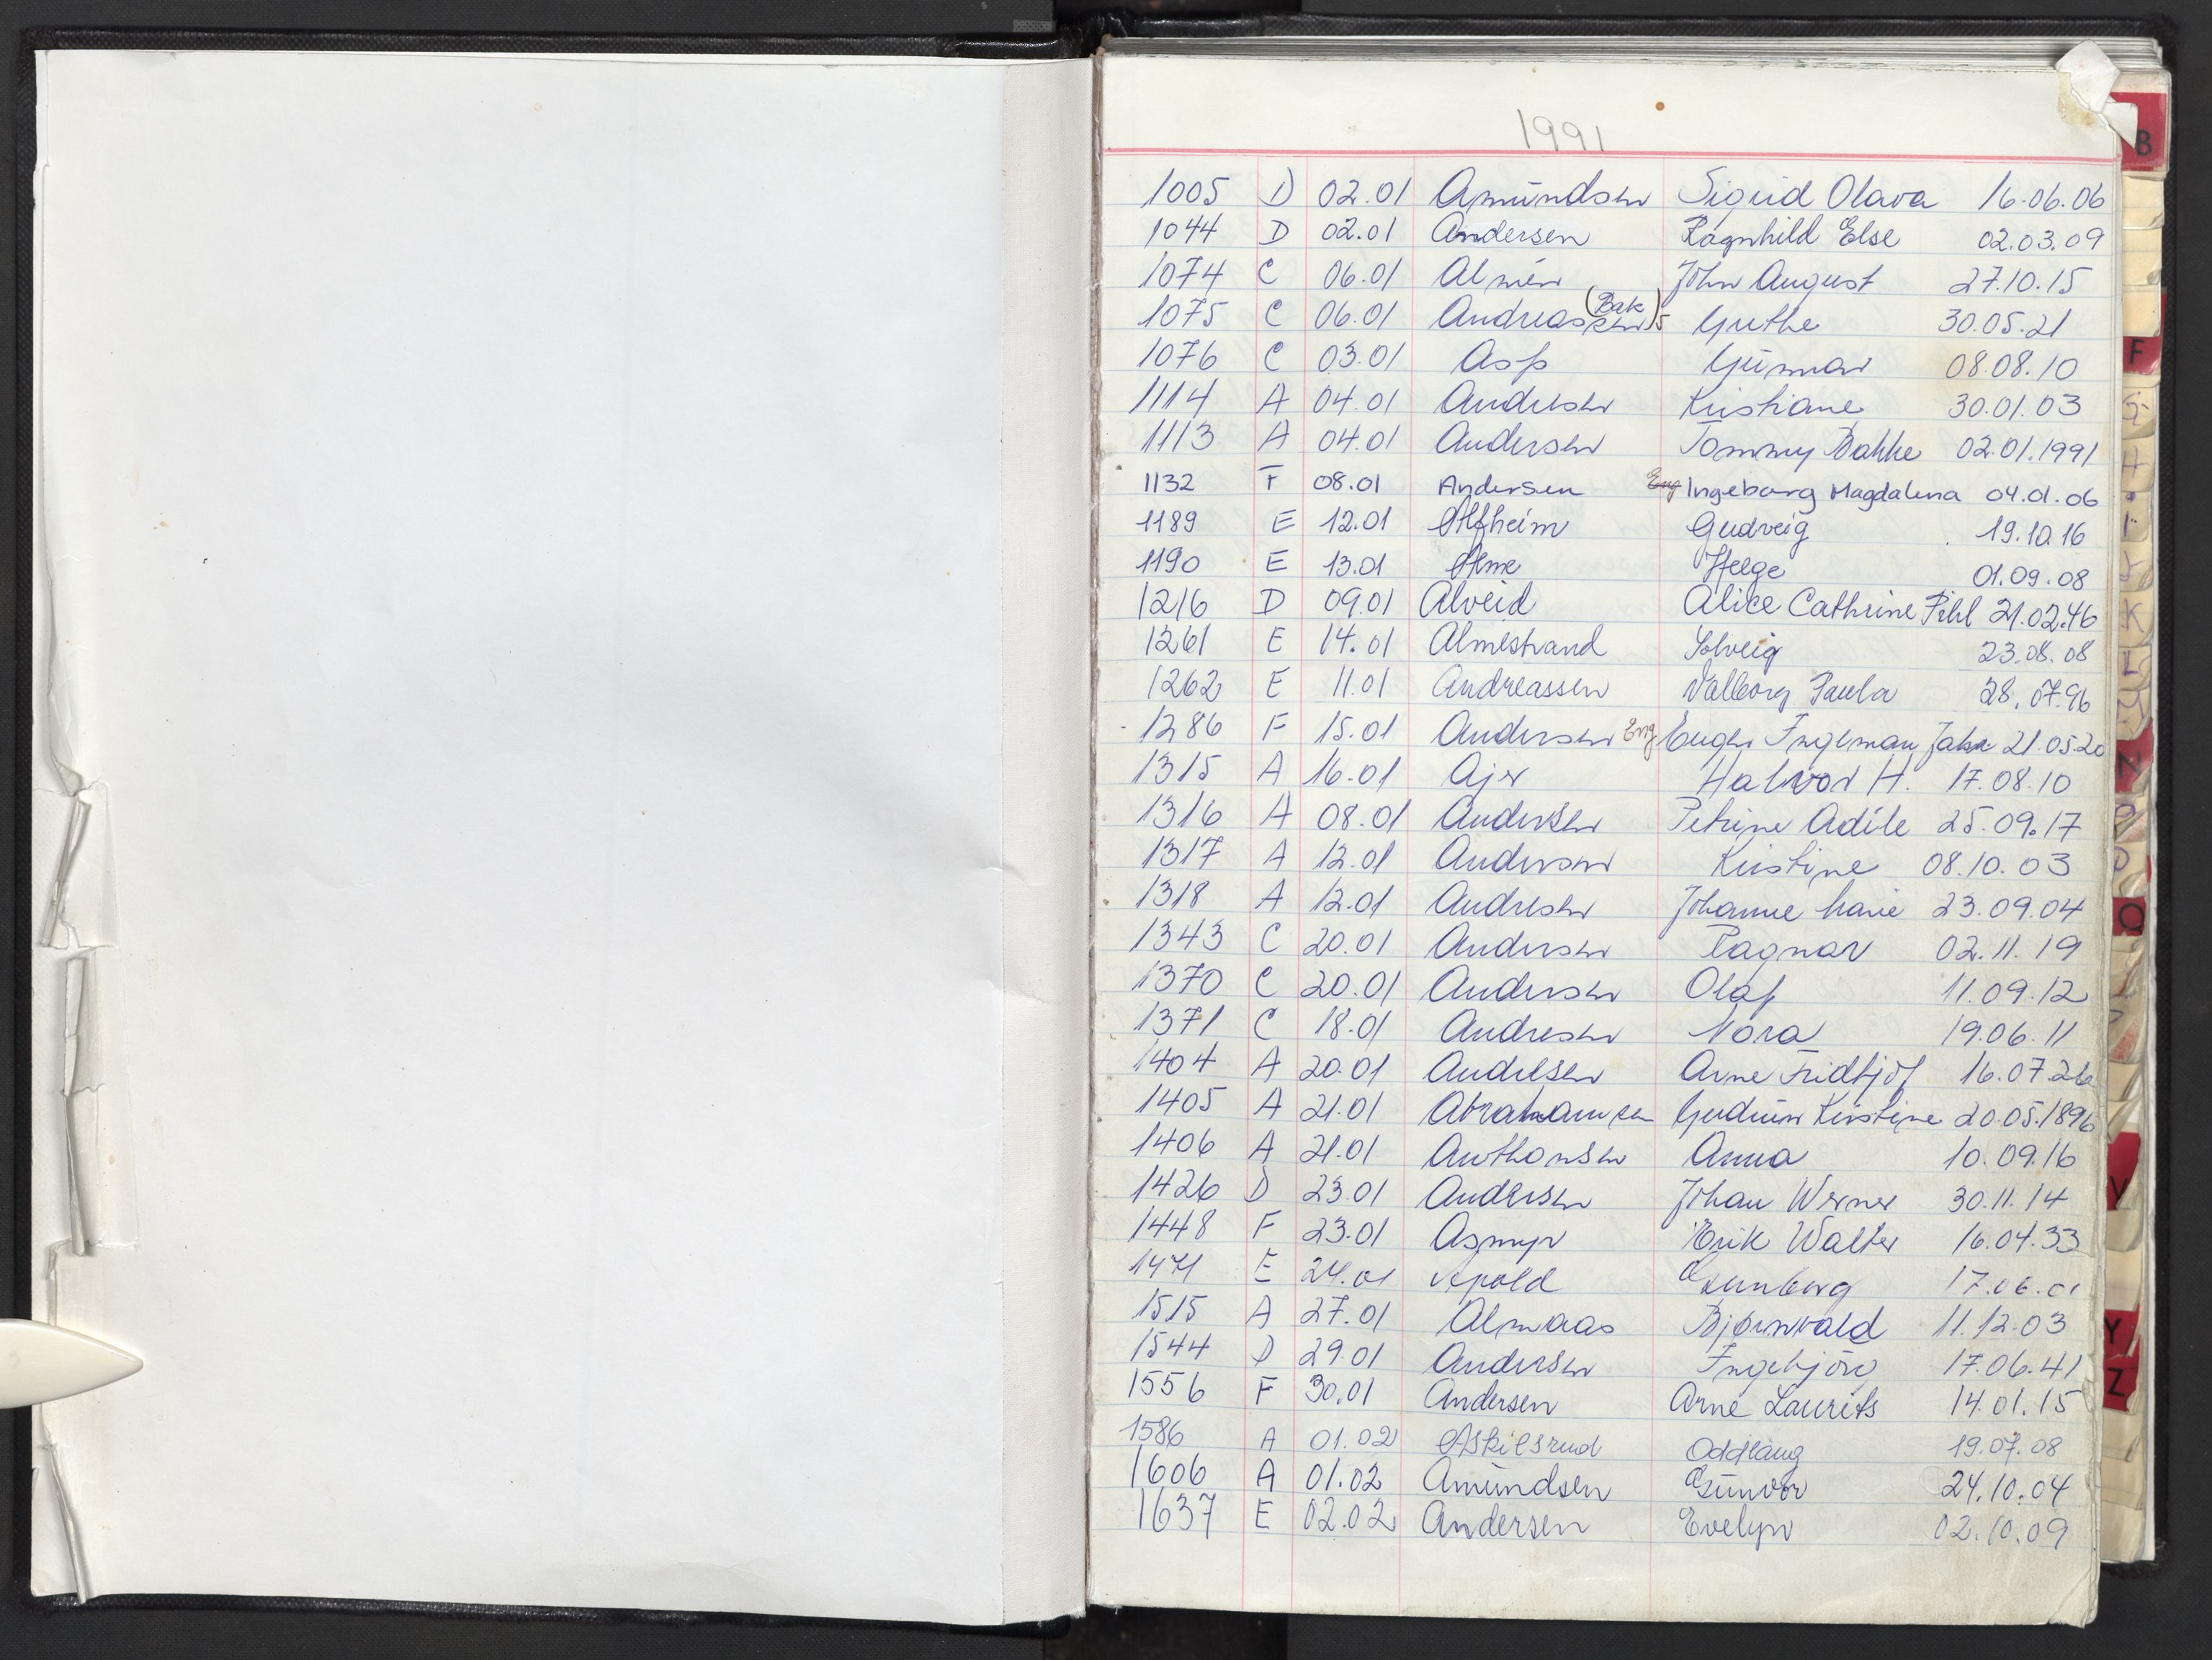 1991
1005 D 02.01 Amundsen Sigrid Olava 16.06.06
1044 D 02.01 Andersen Ragnhild Else 02.03.09
1074 C 06.01 Almén John August 27.10.15
1075 C 06.01 Andreassen (Bak) Grethe 30.05.21
1076 C 03.01 Asp Gunnar 08.08.10
1114 A 04.01 Andresen Kristiane 30.01.03
1113 A 04.01 Andersen Tommy Bakke 02.01.1991
1132 F 08.01 Andersen Eng Ingeborg Magdalena 04.01.06
1189 E 12.01 Alfheim Gudveig 19.10.16
1190 E 13.01 Alme Helge 01.09.08
1216 D 09.01 Alveid Alice Cathrine Pihl 21.02.46
1261 E 14.01 Almestrand Solveig 23.08.08
1262 E 11.01 Andreassen Valborg Paula 28.07.96
1286 F 15.01 Andersen Eng Eugen Ingeman Jahn 21.05.20
1315 A 16.01 Ajer Halvor H. 17.08.10
1316 A 08.01 Andersen Petrine Adile 25.09.17
1317 A 12.01 Andersen Kristine 08.10.03
1318 A 12.01 Andresen Johanne Marie 23.09.04
1343 C 20.01 Andersen Ragnar 02.11.19
1370 C 20.01 Andersen Olaf 11.09.12
1371 C 18.01 Andresen Nora 19.06.11
1404 A 20.01 Andresen Arne Fridtjof 16.07.26
1405 A 21.01 Abrahamsen Gudrun Kirstine 20.05.1896
1406 A 21.01 Anthonsen Anna 10.09.16
1426 D 23.01 Andersen Johan Werner 30.11.14
1448 F 23.01 Asmyr Erik Walter 16.04.33
1471 E 24.01 Apold Gunborg 17.06.01
1515 A 27.01 Almaas Bjørnvald 11.12.03
1544 D 29.01 Andersen Ingebjörg 17.06.41
1556 F 30.01 Andersen Arne Laurits 14.01.15
1586 A 01.02 Askilsrud Oddlaug 19.07.08
1606 A 01.02 Amundsen Gunvor 24.10.04
1637 E 02.02 Andersen Evelyn 02.10.09
B
F
G
H
I
J
K
L
M
N
O
Q
V
Y
Z